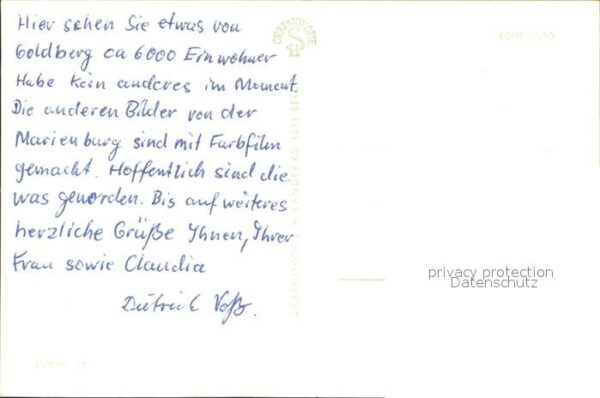 Hier sehen Sie etwas von
Goldberg ca 6000 Einwohner
Habe kein anderes im Moment.
Die anderen Bilder von der
Marienburg sind mit Farbfilm
gemacht. Hoffentlich sind die
was geworden. Bis auf weiteres
herzliche Grüße Ihnen, Ihrer
Frau sowie Claudia
Dietrich Voß.
ECHT FOTO
privacy protection
Datenschutz